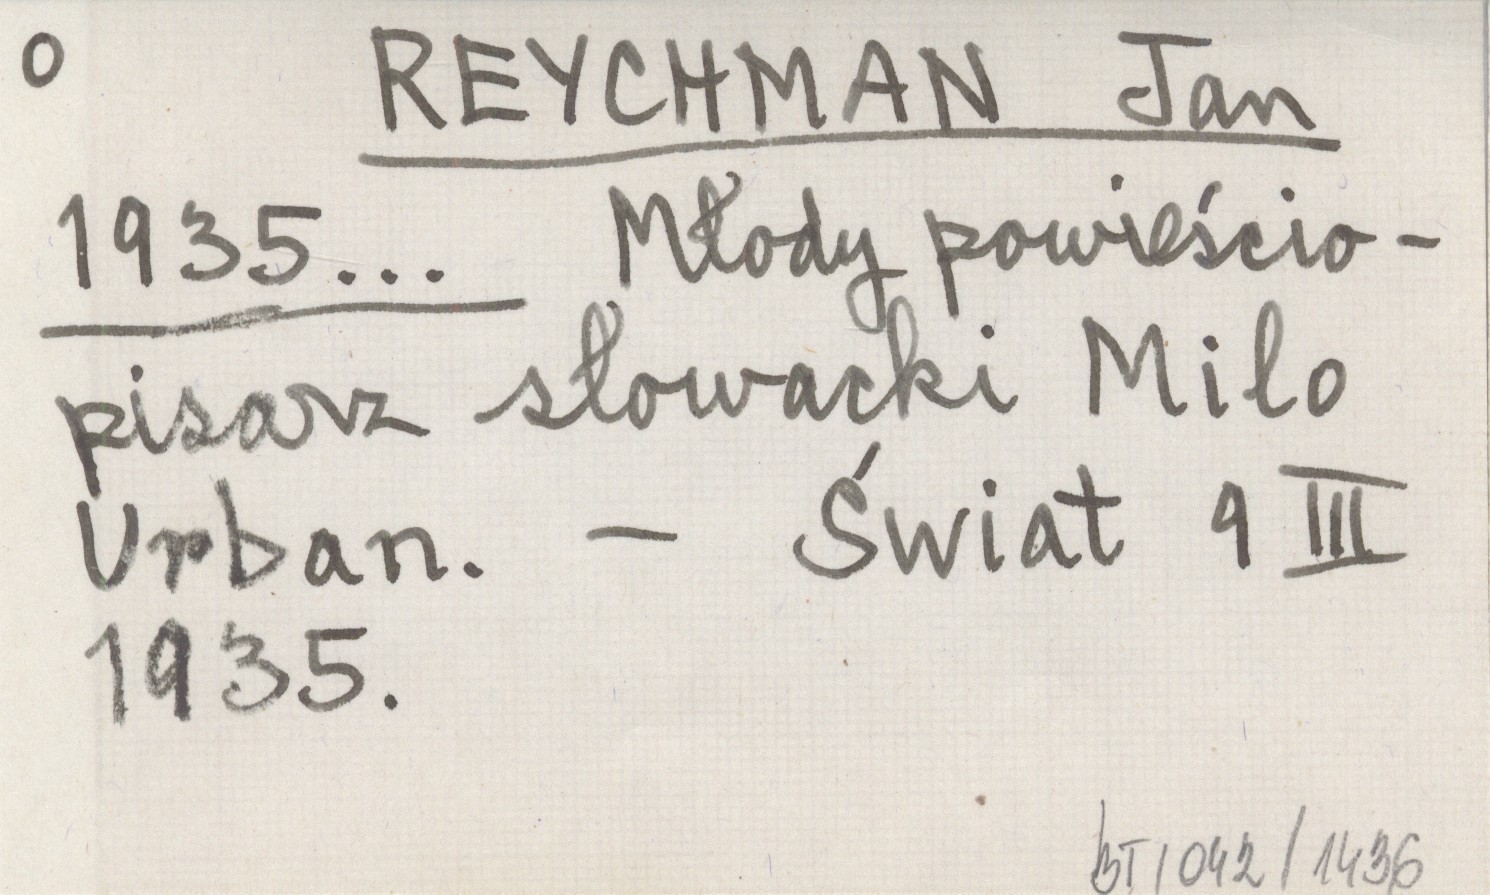 o REYCHMAN Jan
1935... Młody powieścio-
pisarz słowacki Milo
Urban. - Świat 9 III
1935.
BT/042/1436